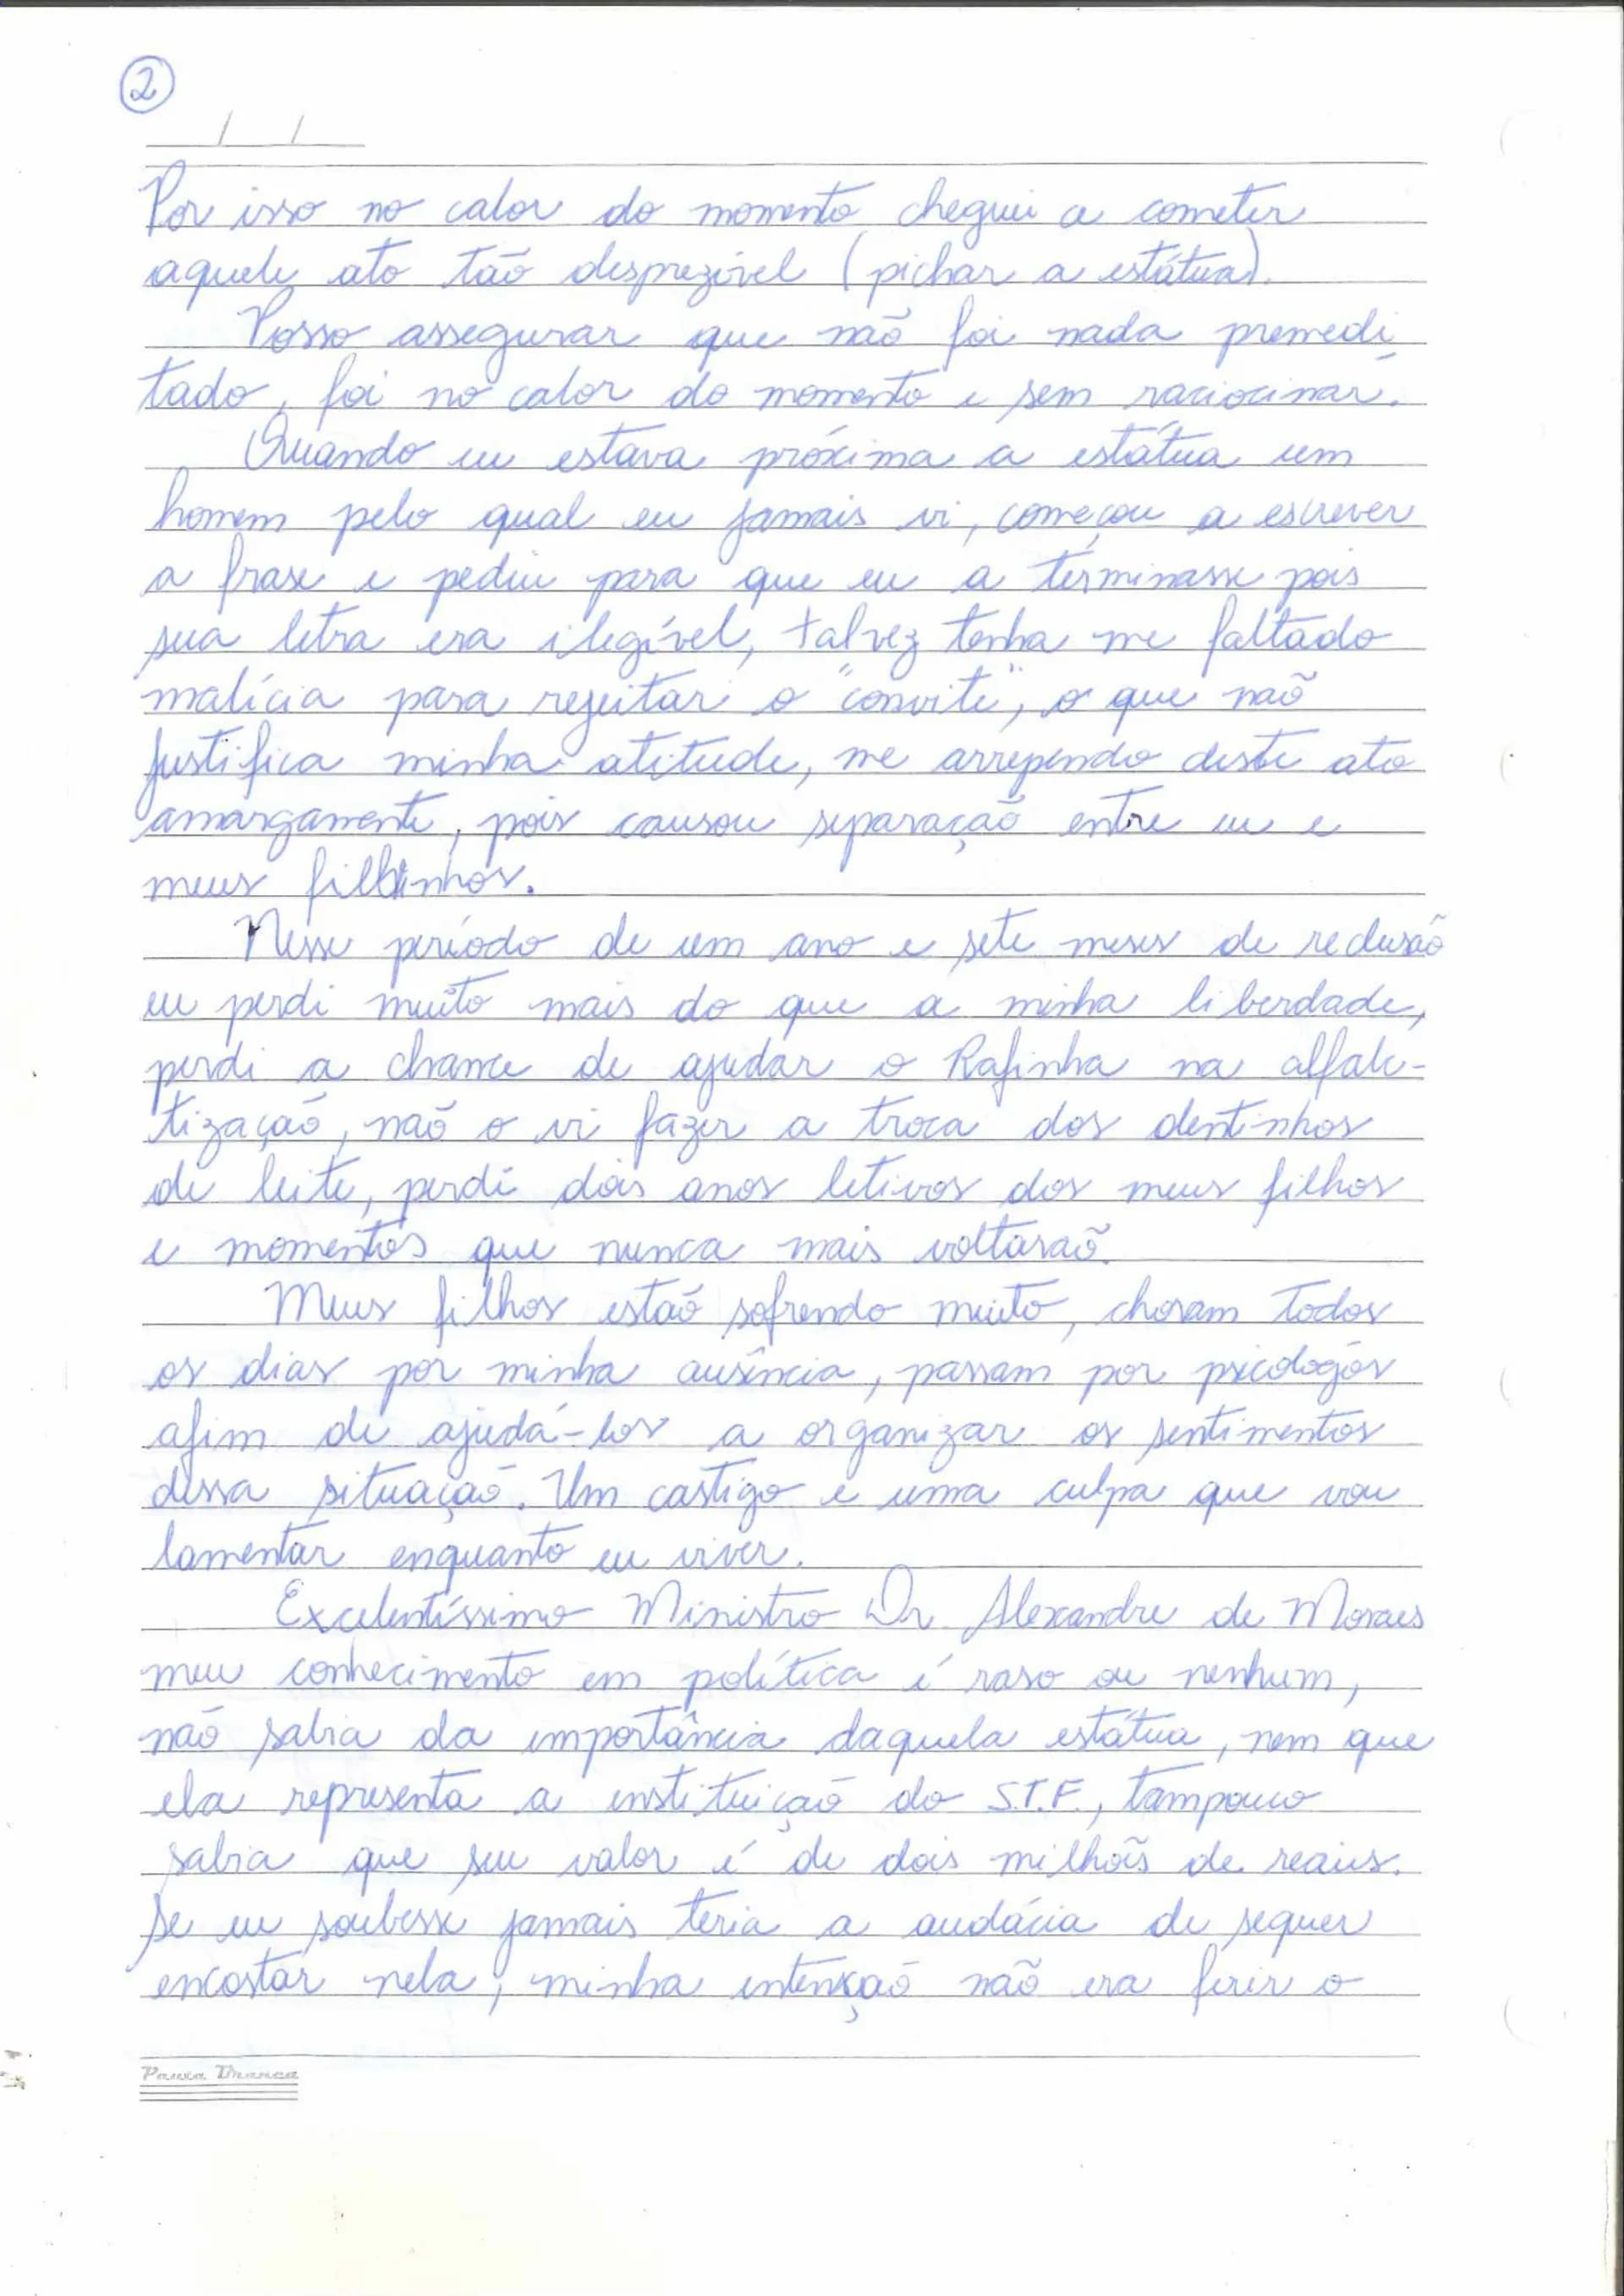 2
/ /
Por isso no calor do momento cheguei a cometer
aquele ato tão desprezível (pichar a estátua).
Posso assegurar que não foi nada premedi
tado, foi no calor do momento e sem raciocinar.
Quando eu estava próxima a estátua um
homem pelo qual eu jamais vi, começou a escrever
a frase e pediu para que eu a terminasse pois
sua letra era ilegível, talvez tenha me faltado
malícia para rejeitar o "convite", o que não
justifica minha atitude, me arrependo deste ato
amargamente, pois causou separação entre eu e
meus filhinhos.
Nesse período de um ano e sete meses de reclusão
eu perdi muito mais do que a minha liberdade,
perdi a chance de ajudar o Rafinha na alfabe-
tização, não o vi fazer a troca dos dentinhos
de leite, perdi dois anos letivos dos meus filhos
e momentos que nunca mais voltarão.
Meus filhos estão sofrendo muito, choram todos
os dias por minha ausência, passam por psicológos
afim de ajudá-los a organizar os sentimentos
dessa situação. Um castigo e uma culpa que vou
lamentar enquanto eu viver.
Excelentíssimo Ministro Dr Alexandre de Moraes
meu conhecimento em política é raso ou nenhum,
não sabia da importância daquela estátua, nem que
ela representa a instituição do S.T.F., tampouco
sabia que seu valor é de dois milhões de reais.
Se eu soubesse jamais teria a audácia de sequer
encostar nela, minha intenção não era ferir o
Pauta Branca